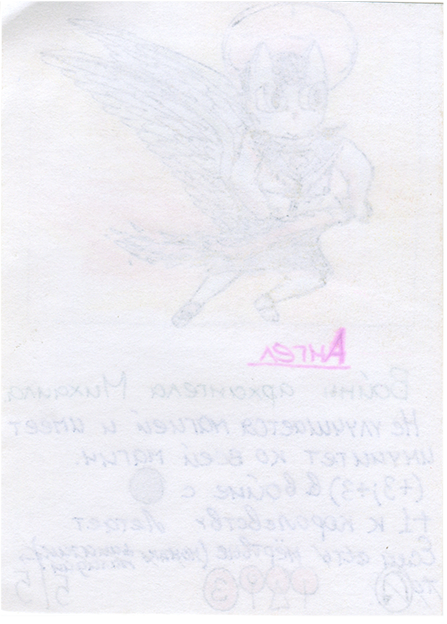 Ангел
Воин архангела Михаила
Не улучшается магией и имеет
иммунитет ко всей магии.
(+3;+3) в войне с
+1 к королевству Летает
Если есть мёртвые
5/5